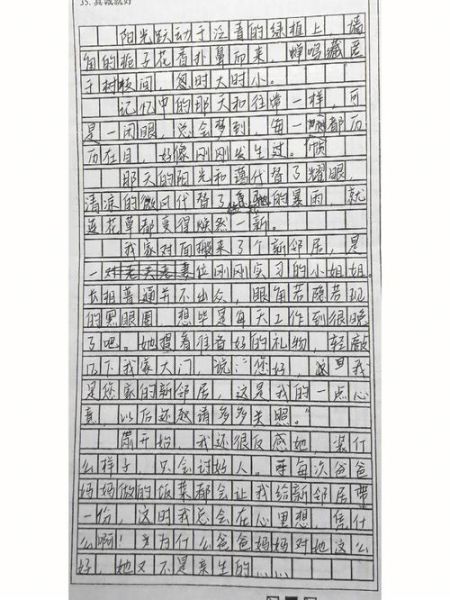 35. 真诚就好
阳光跃动于泛青的绿植上，墙
角的栀子花香扑鼻而来，蝉鸣藏匿
于树梢间，忽时大时小。
记忆中的那天和往常一样，可
是一闭眼，总会梦到，每一都历
历在目，好像刚刚发生过。
那天的阳光和蔼代替了耀眼，
清凉的微风代替了的暴雨，就
连花草都变得焕然一新。
我家对面搬来了个新邻居，是
一位刚刚实习的小姐姐。
长相普通并不出众，眼角若隐若现
的黑眼圈，想毕是每天工作到很晚
了吧。她提着往昔好的礼物，轻敲
几下我家大门，说："您好，这里我
是您家的新邻居，这是我的一点心
意，以后还敬请多多关照。"
刚开始，我还很反感她，装什
么样子，只会讨好人。每次爸爸
妈妈做的饭菜都会让我给新邻居带
一份，这时我总会在心里想，凭什
么啊！为什么爸爸妈妈对她这么
好，她又不是亲生的……